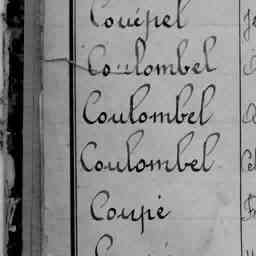 Couépel
Coulombel
Coulombel
Coulombel
Coupé